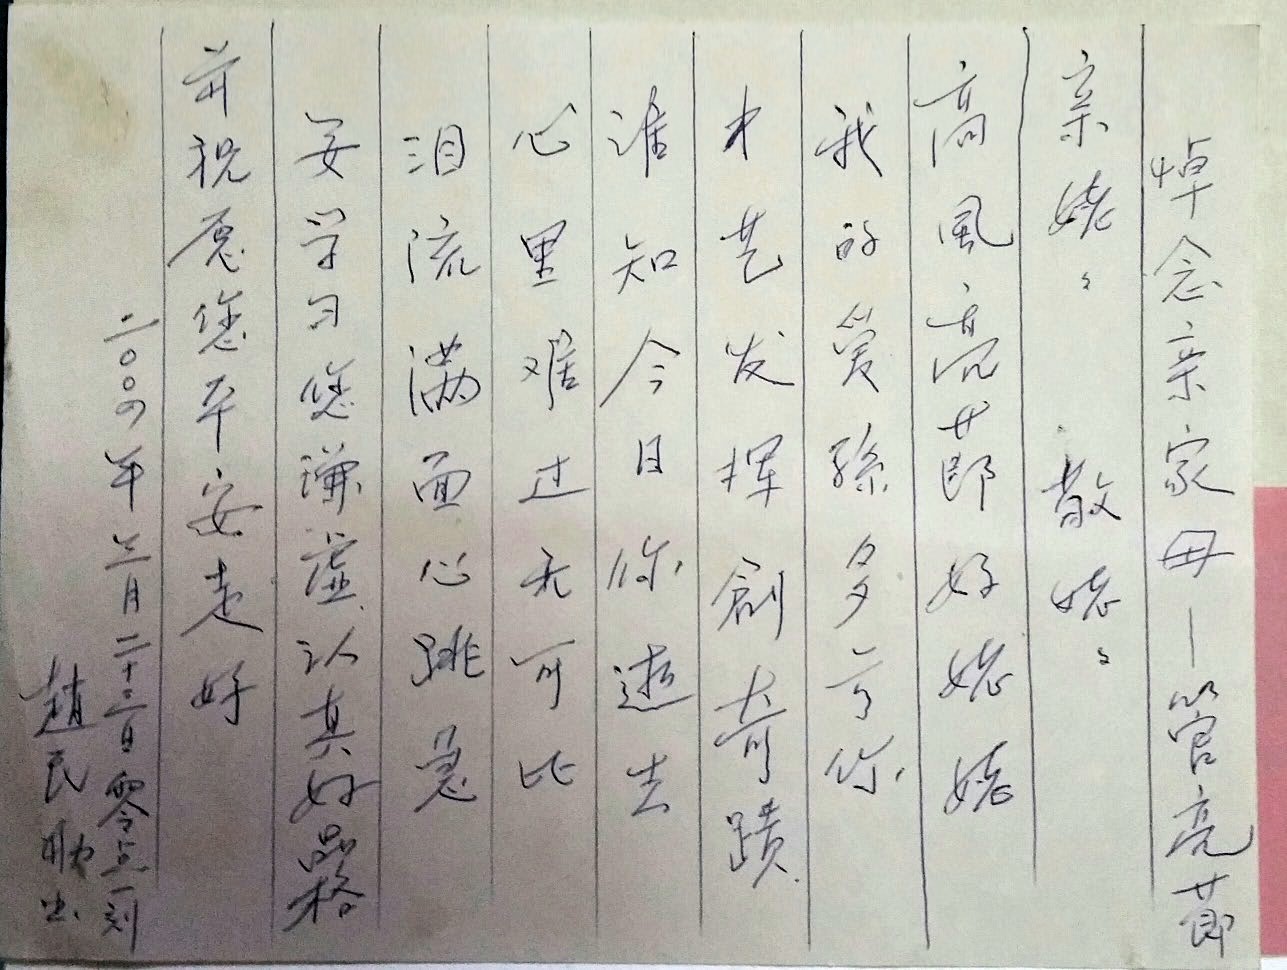 悼念亲家母—管亮莭
亲姥々 敬姥々
高風亮莭好姥姥
我的爱孫多亏你
才艺发揮創奇蹟
谁知今日你逝去
心里难过无可比
泪流满面心跳急
要学习您谦虚认真好品格
并祝愿您平安走好
二〇〇四年三月二十三日零点一刻
趙民